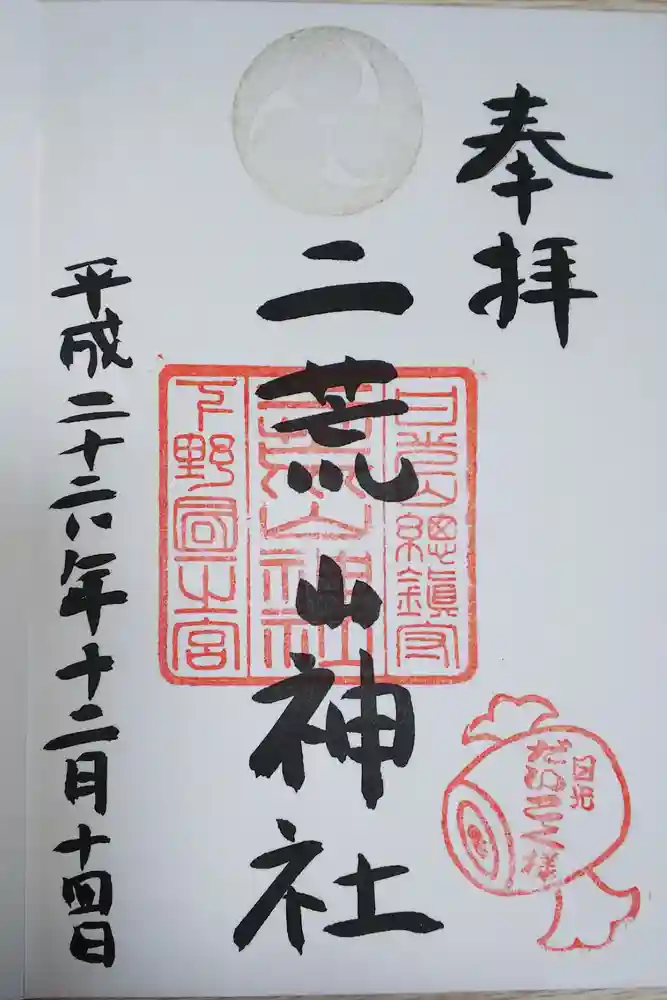 奉拝
二荒山神社
平成二十六年十二月十四日
日光山総鎮守
二荒山神社
下野国一之宮
日光
だいこく様